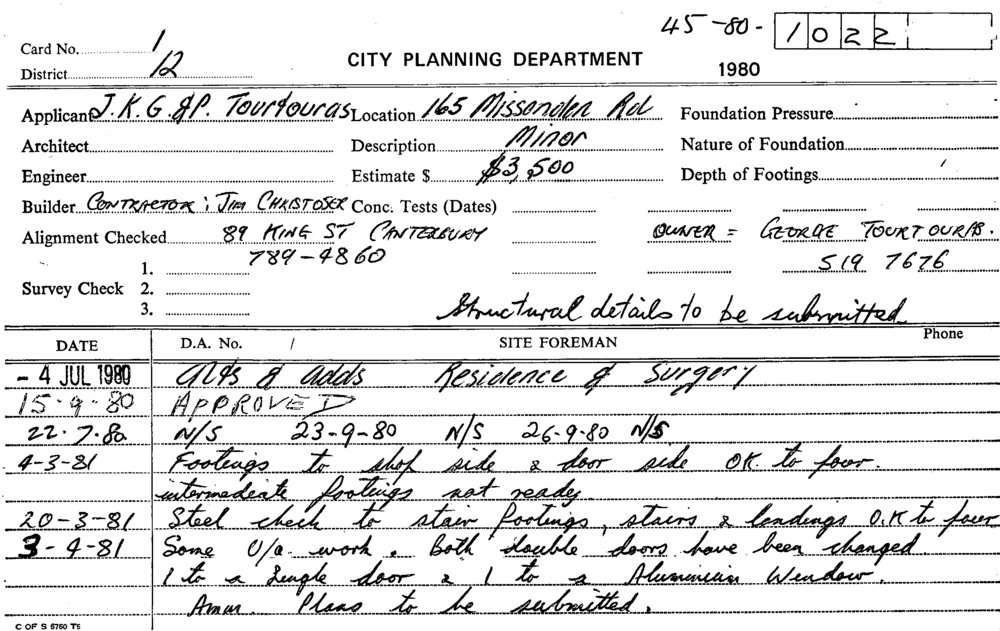 45-80- 1022
Card No. 1
District 12
CITY PLANNING DEPARTMENT
1980
Applicant J.K.G. &P. Tourtouras Location 165 Missenden Rd Foundation Pressure
Architect Description Minor Nature of Foundation
Engineer Estimate $ $3,500 Depth of Footings
Builder CONTRACTOR: JIM CHRISTOSER Conc. Tests (Dates)
Alignment Checked 89 KING ST CANTERBURY OWNER = GEORGE TOURTOURAS.
789-4860 519 7676
1.
Survey Check 2.
3.
Structural details to be submitted
DATE D.A. No. / SITE FOREMAN Phone
- 4 JUL 1980 Alts & adds Residence & Surgery
15-9-80 APPROVED
22-7-80 N/S 23-9-80 N/S 26-9-80 N/S
4-3-81 Footings to shop side & door side OK to pour.
intermediate footings not ready.
20-3-81 Steel check to stair footings, stairs & landings O.K to pour
3-4-81 Some U/a work. Both double doors have been changed
1 to a single door & 1 to a Aluminium Window.
Plans to be submitted.
C OF S 6760 T6